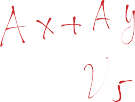 Ax+Ay
V5